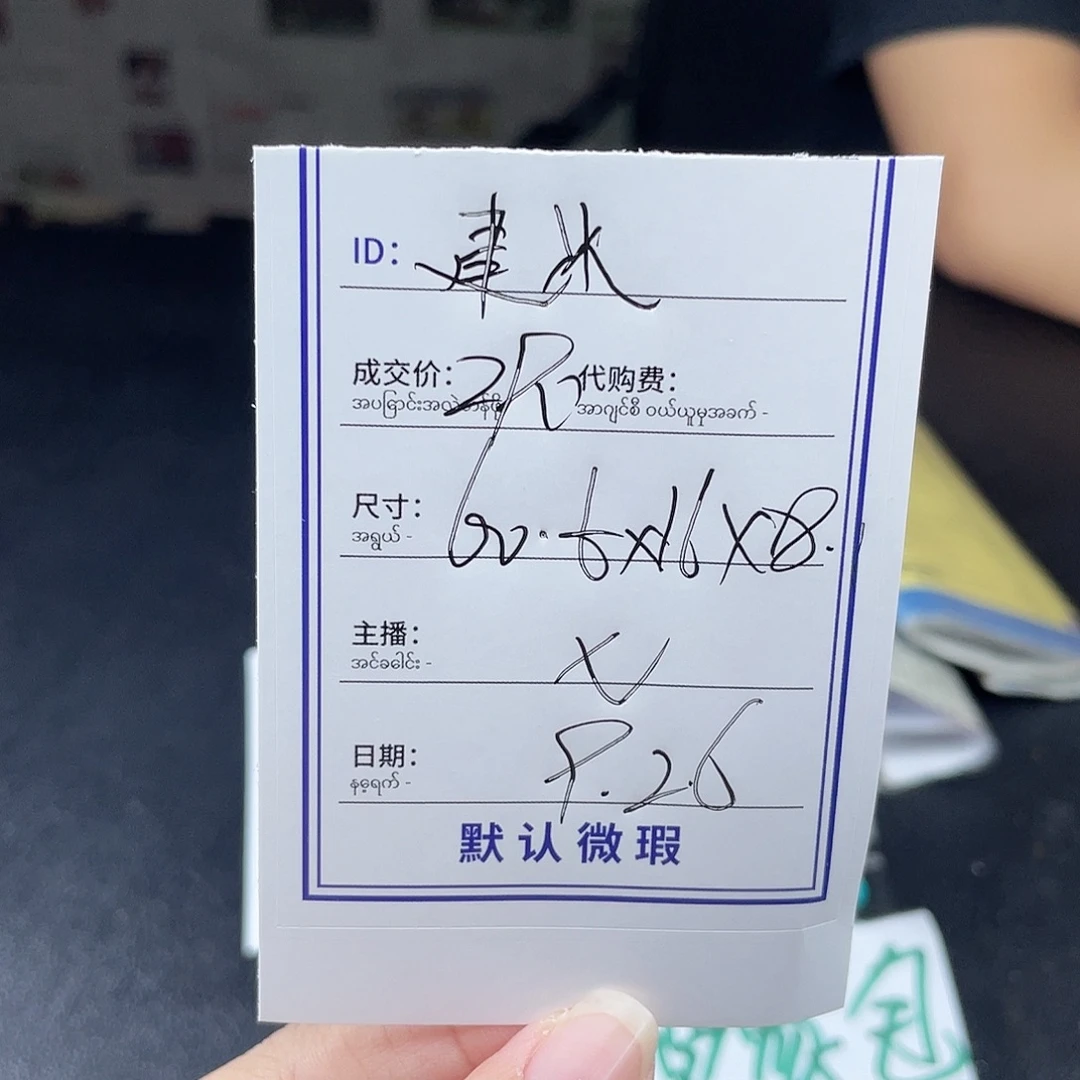 ID：建水
成交价：2R 代购费：
အပြောင်းအလဲတန်ဖိုး အာဂျင်စီ ဝယ်ယူမှုအခက် -
尺寸：60.6x16x8.
အရွယ် -
主播：
အင်ခေါင်း -
日期：9.26
နေ့ရက် -
默认微瑕
包